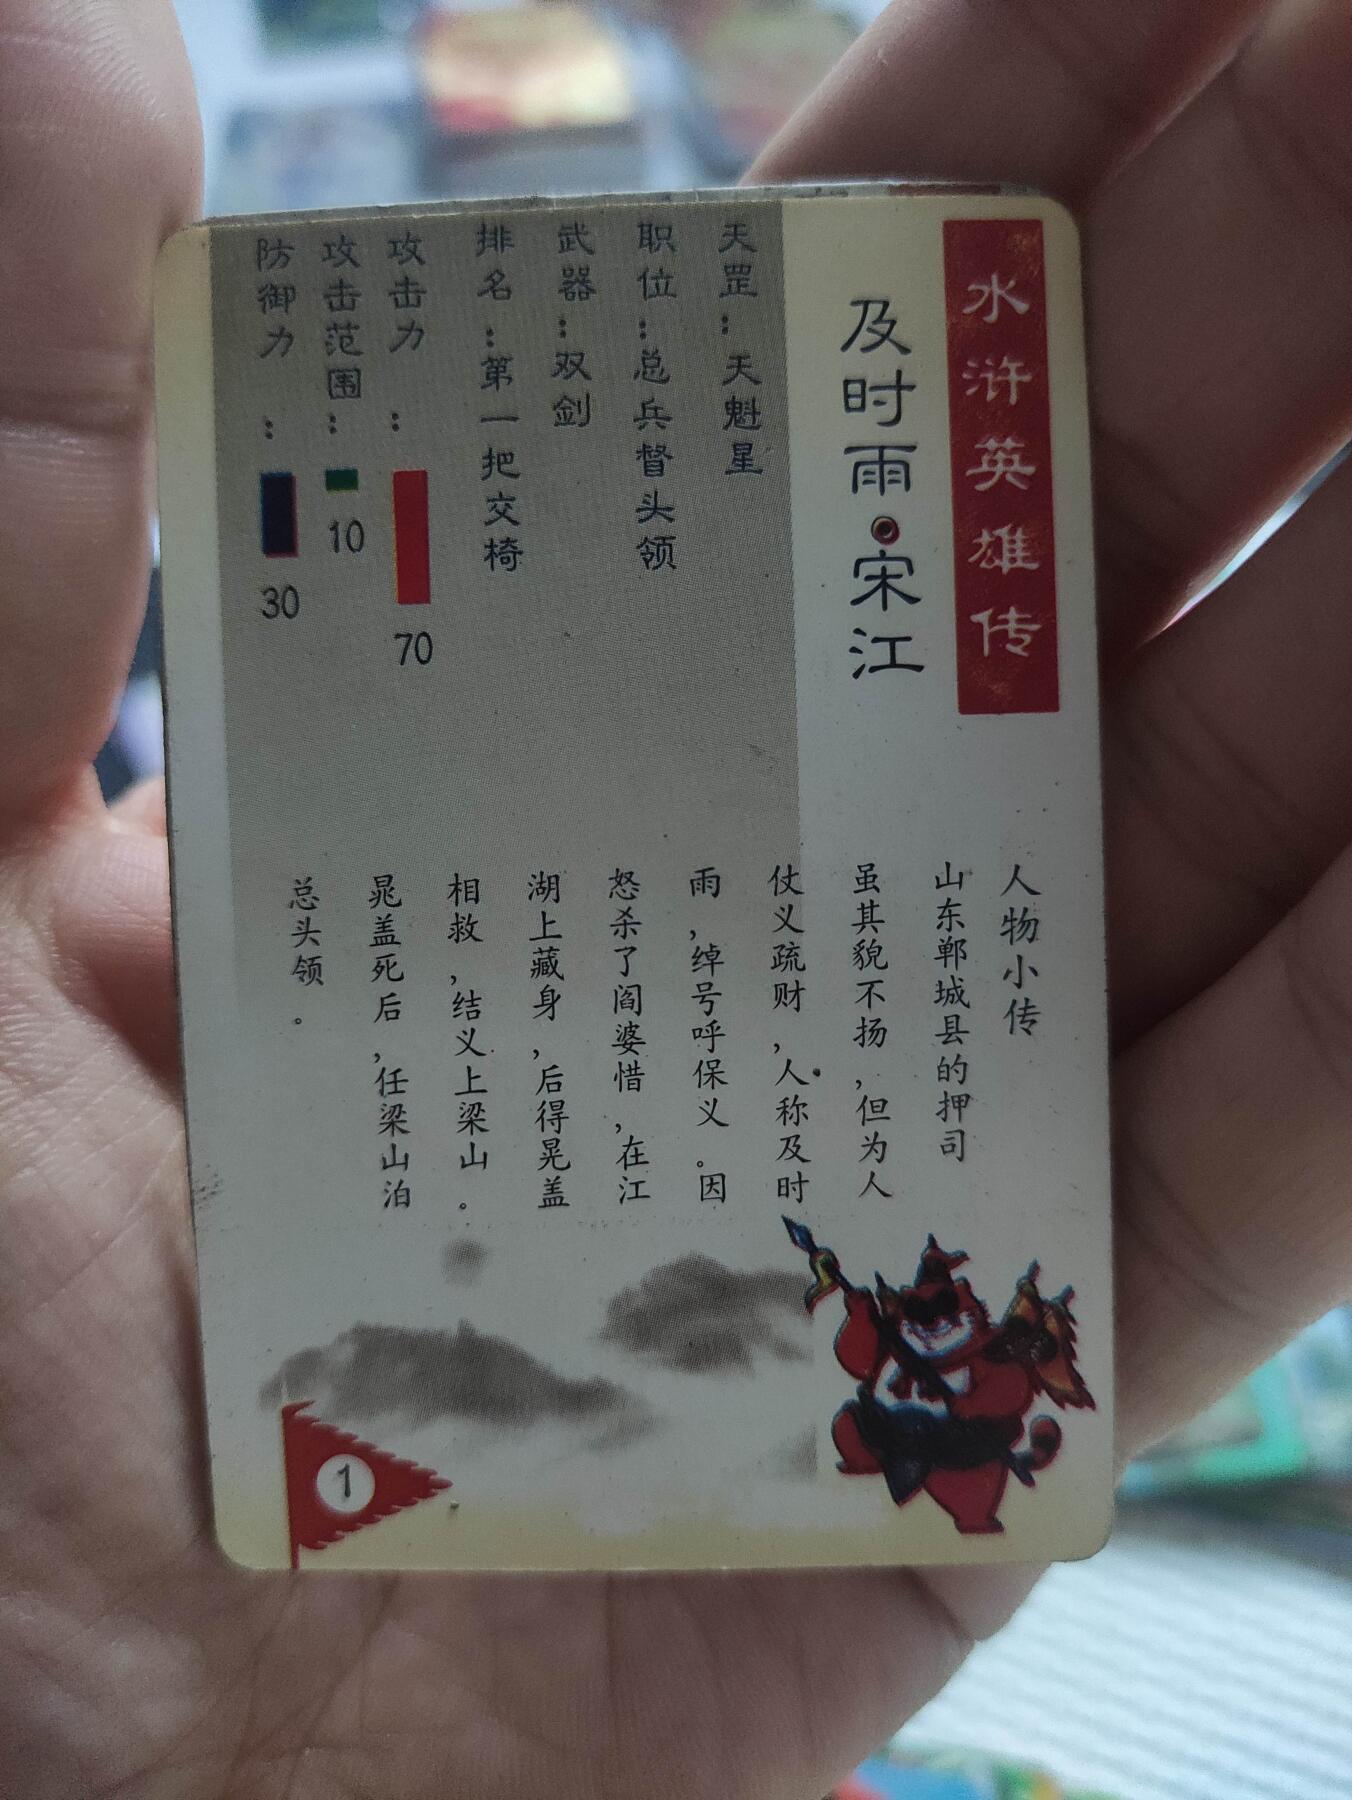 水浒英雄传
及时雨·宋江
天罡：天魁星
职位：总兵督头领
武器：双剑
排名：第一把交椅
攻击力：70
攻击范围：10
防御力：30
人物小传
山东郓城县的押司
虽其貌不扬，但为人
仗义疏财，人称及时
雨，绰号呼保义。因
怒杀了阎婆惜，在江
湖上藏身，后得晃盖
相救，结义上梁山。
晁盖死后，任梁山泊
总头领。
1